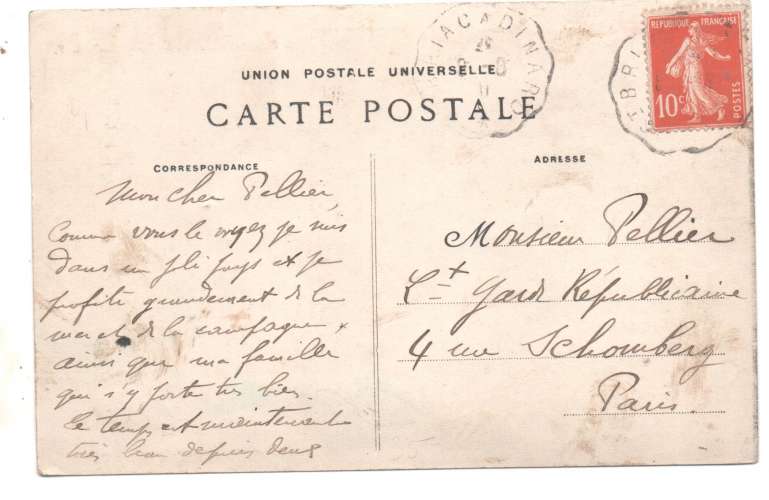 UNION POSTALE UNIVERSELLE
CARTE POSTALE
REPUBLIQUE FRANÇAISE
10c
POSTES
CORRESPONDANCE
Mon cher Pellier,
Comme vous le voyez je suis
dans un joli pays et je
profite grandement de la
mer et de la campagne
ainsi que ma famille
qui s'y porte très bien.
Le temps est maintenant
très beau depuis deux
ADRESSE
Monsieur Pellier
Lt Garde Républicaine
4 rue Schomberg
Paris.